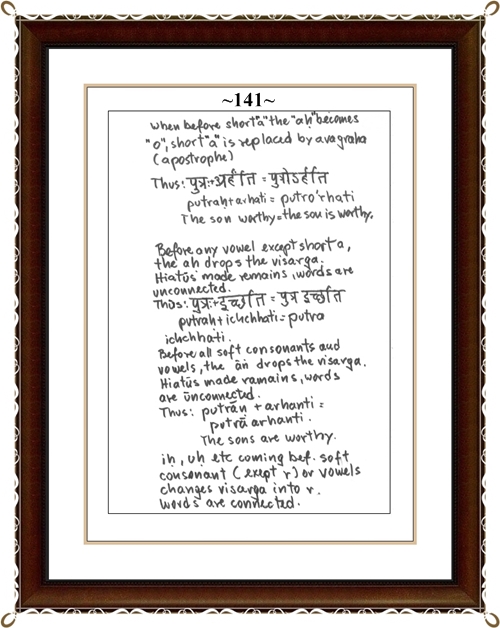 ~141~
When before short "a" the "aḥ" becomes
"o", short "a" is replaced by avagraha
(apostrophe)
Thus: पुत्रः+अर्हति = पुत्रोऽर्हति
putraḥ+arhati = putro'rhati
The son worthy = the son is worthy.
Before any vowel except short a,
the ah drops the visarga.
Hiatus made remains, words are
unconnected.
Thus: पुत्रः+इच्छति = पुत्र इच्छति
putrah + ichchhati = putra
ichchhati.
Before all soft consonants and
vowels, the āh drops the visarga.
Hiatus made ramains, words
are unconnected.
Thus: putrāh + arhanti =
putrā arhanti.
The sons are worthy.
iḥ, uḥ etc coming bef. soft
consonant (exept r) or vowels
changes visarga into r.
words are connected.